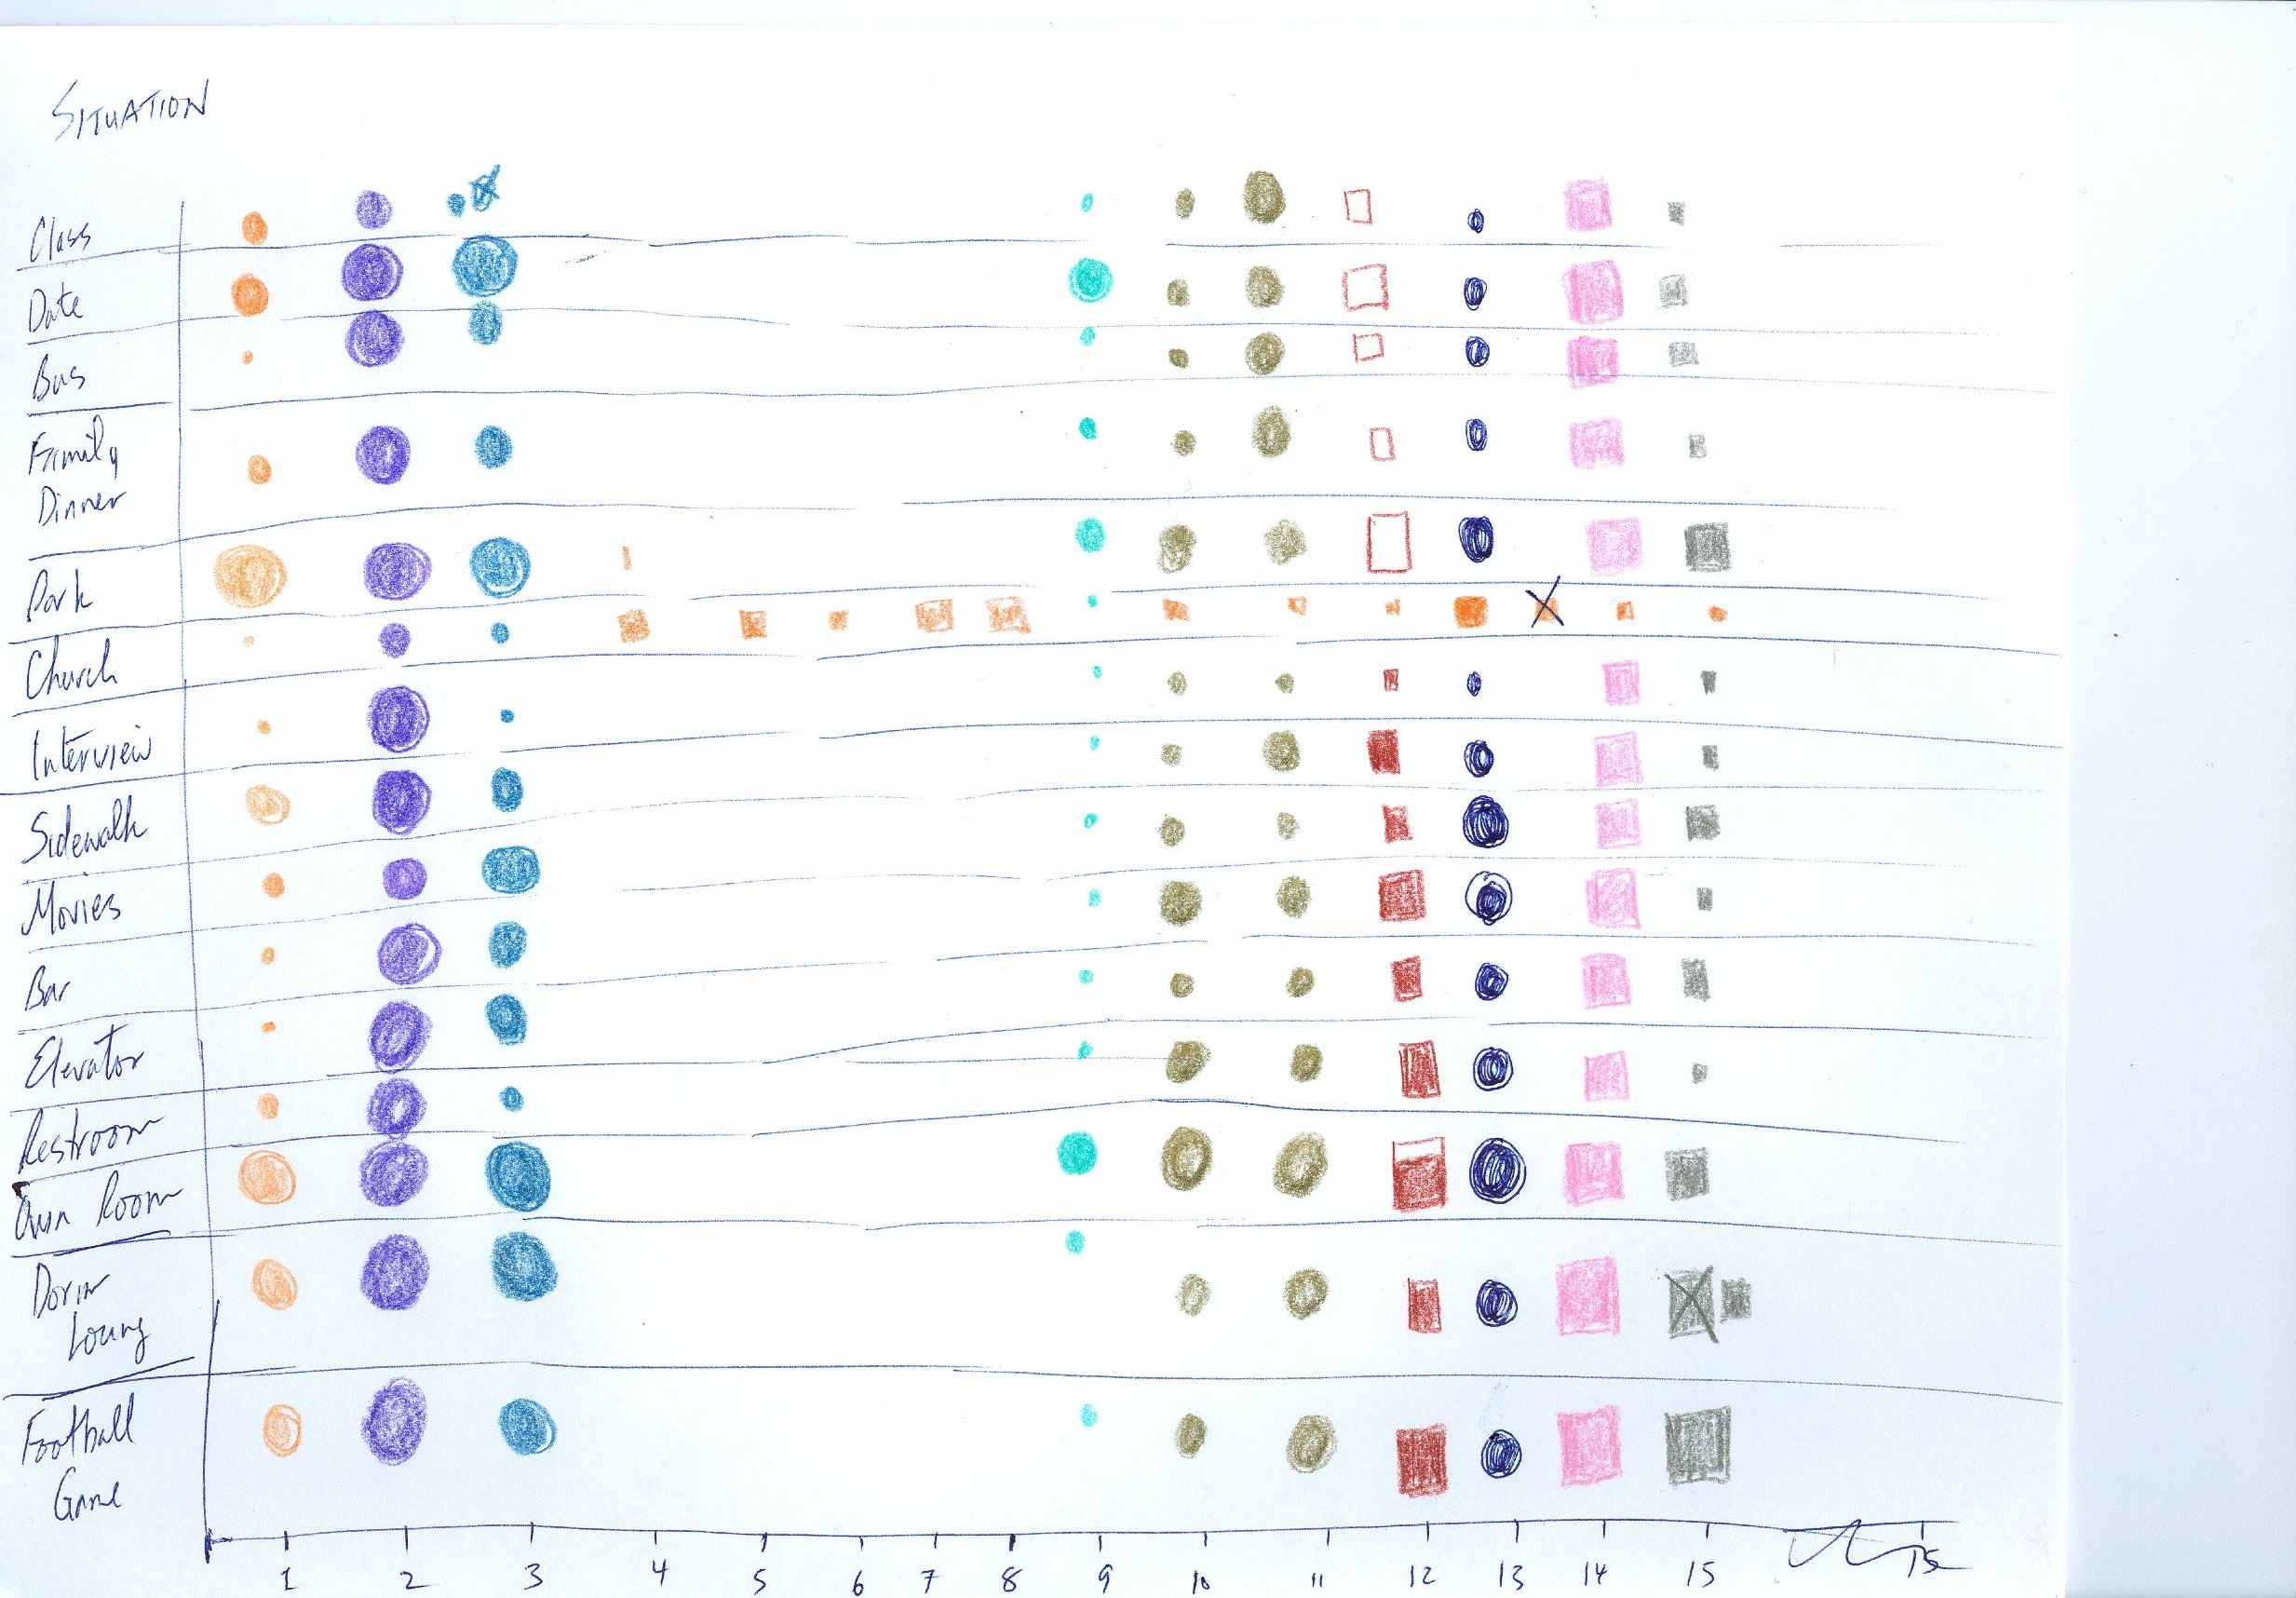 SITUATION
Class
Date
Bus
Family
Dinner
Park
Church
Interview
Sidewalk
Movies
Bar
Elevator
Restroom
Own Room
Dorm
Loung
Football
Game
1 2 3 4 5 6 7 8 9 10 11 12 13 14 15 15